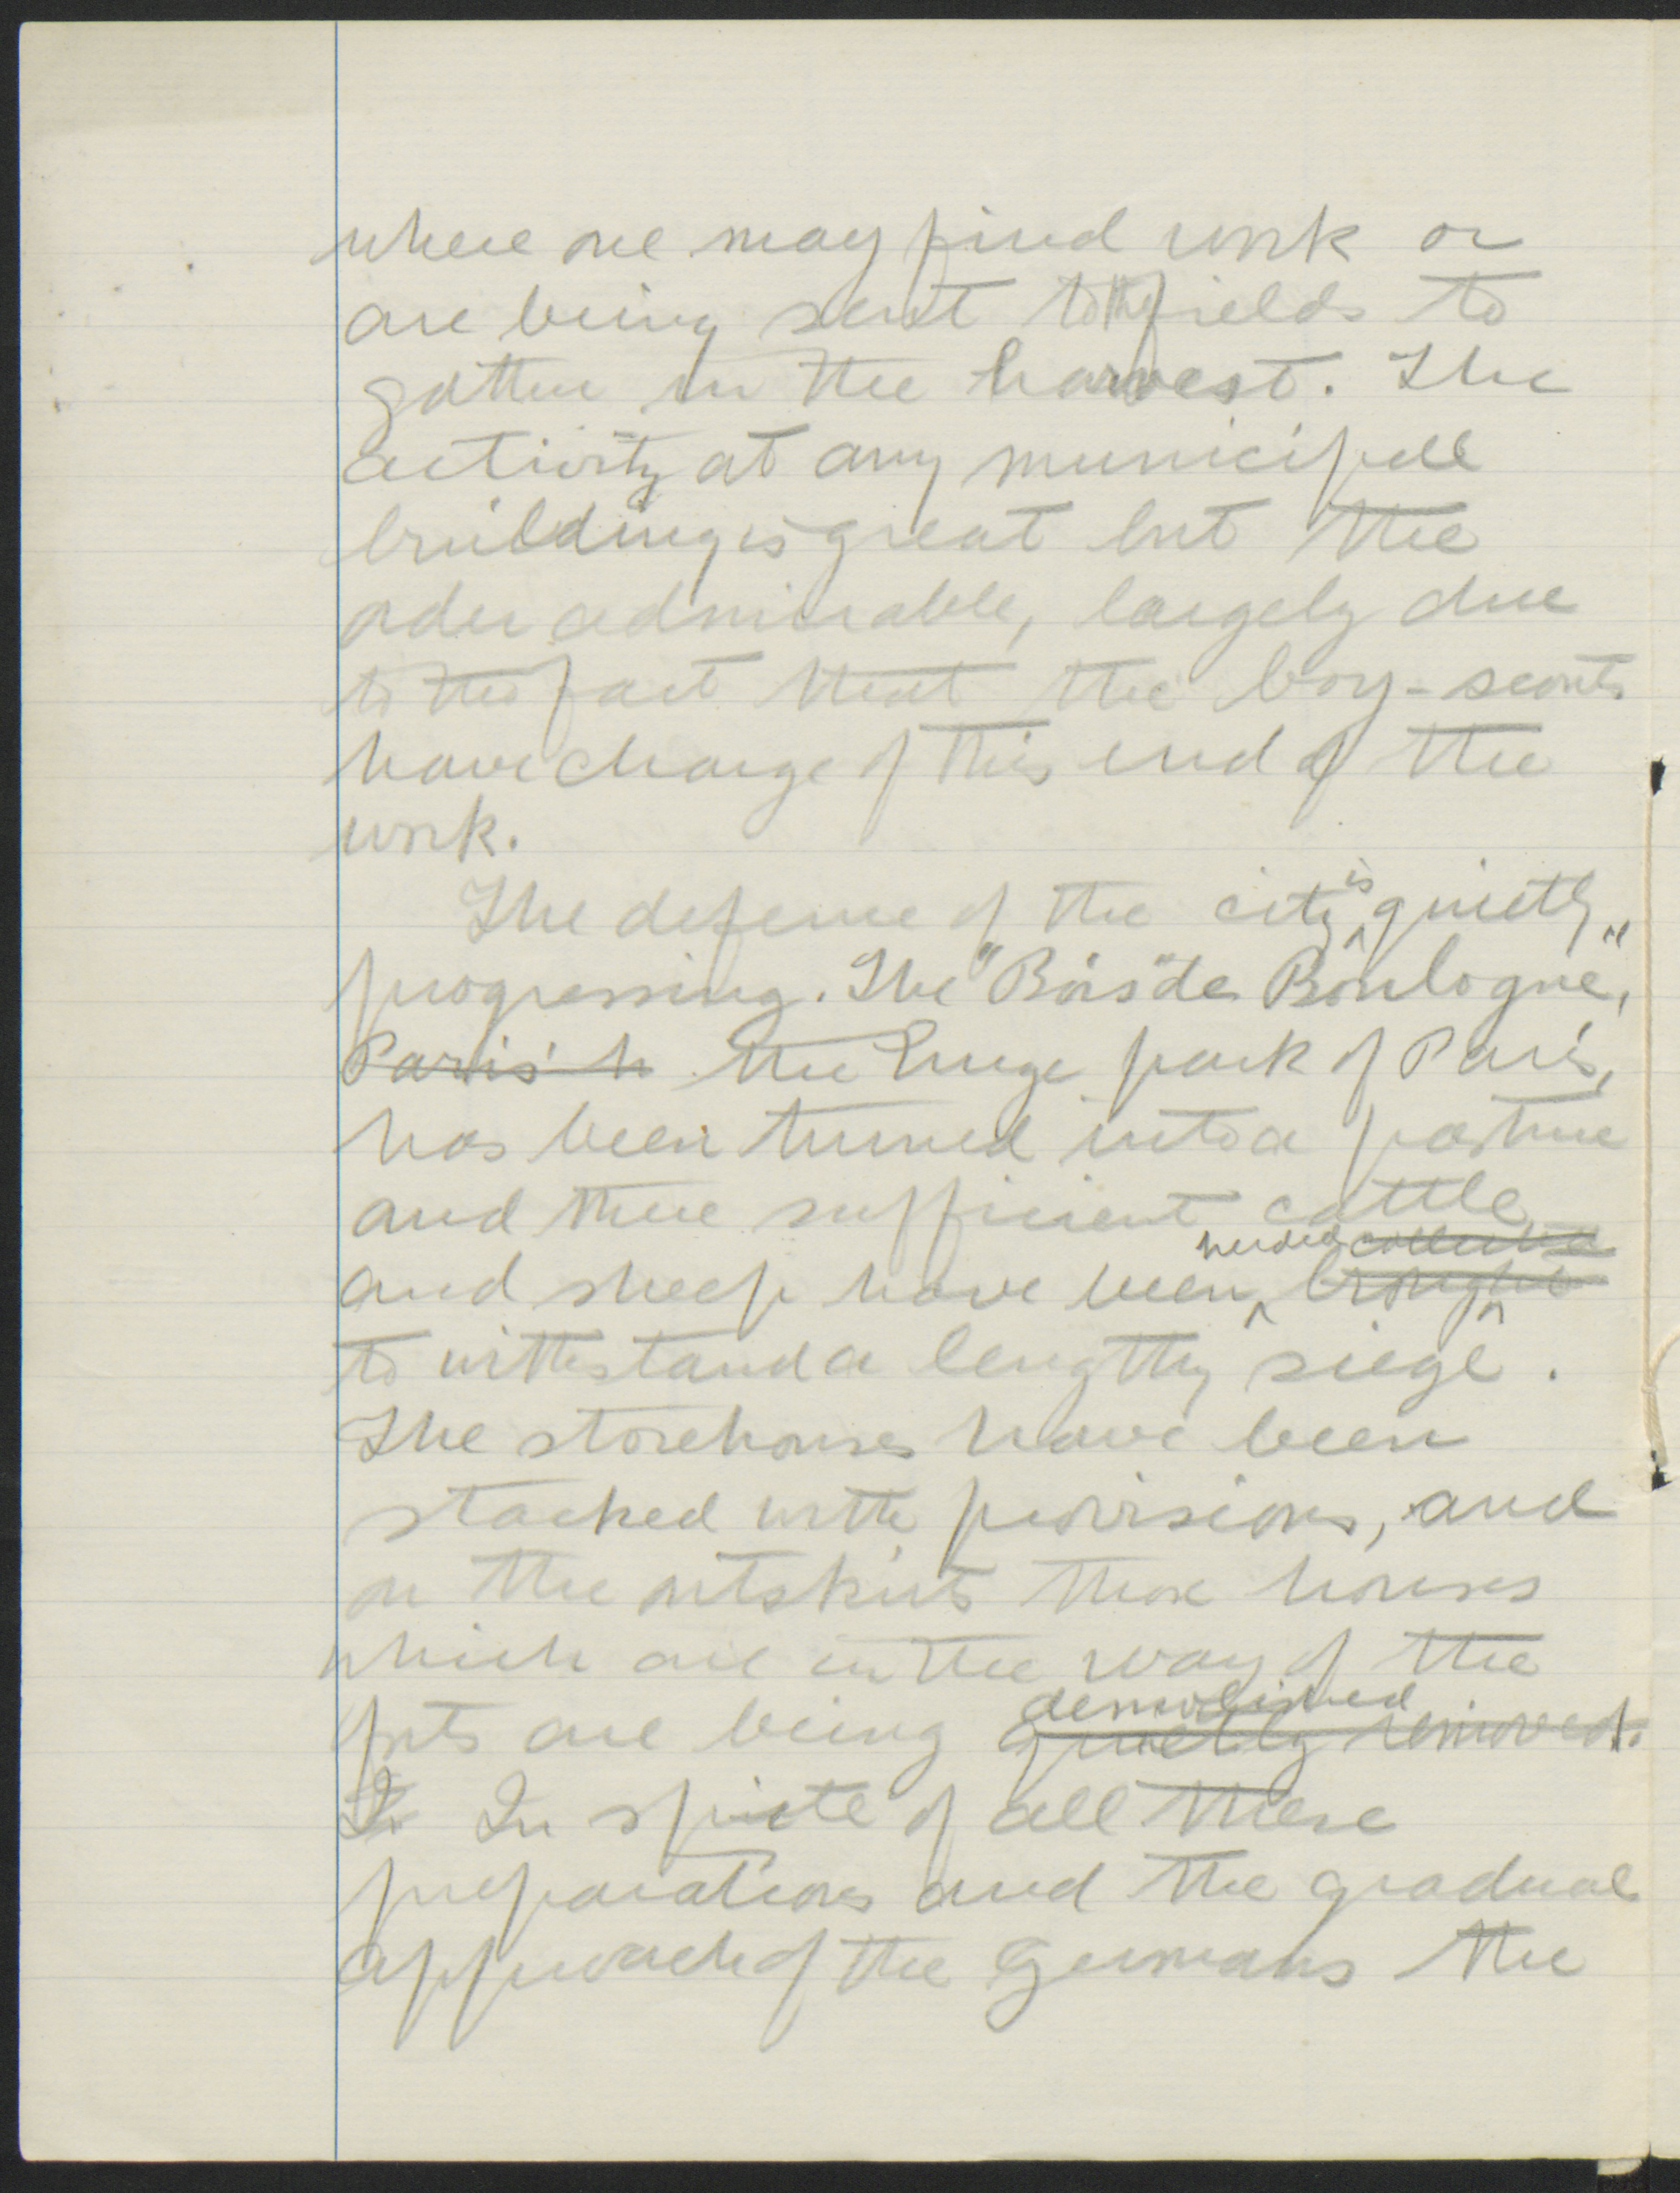 where one may find work or
are being sent to the fields to
gather in the harvest. The
activity at any municipall
building is great but the
order admirable, largely due
to the fact that the boy-scouts
have charge of this end of the
work.
The defense of the city is quietly
progressing. The "Bois de Boulogne",
Paris' h the huge park of Paris,
has been turned into a pasture
and there sufficient cattle
herded collected
and sheep have been brought
to withstand a lengthy siege.
The storehouses have been
stacked with provisions, and
on the outskirts those houses
which are in the way of the
demolished
forts are being quietly removed.
In In spite of all these
preparations and the gradual
approach of the Germans the